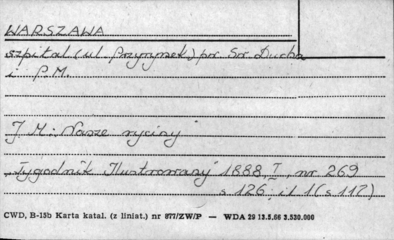 WARSZAWA
szpital (ul. Przyrynek) pr. Św. Ducha
i P.M.
J M: Nasze ryciny
"Tygodnik Ilustrowany" 1888, I, nr 269
s 126: il 1 (s 117)
CWD, B-13b Karta katal. (z liniat.) nr 877/ZW/P — WDA 29 13.5.66 2,530.000